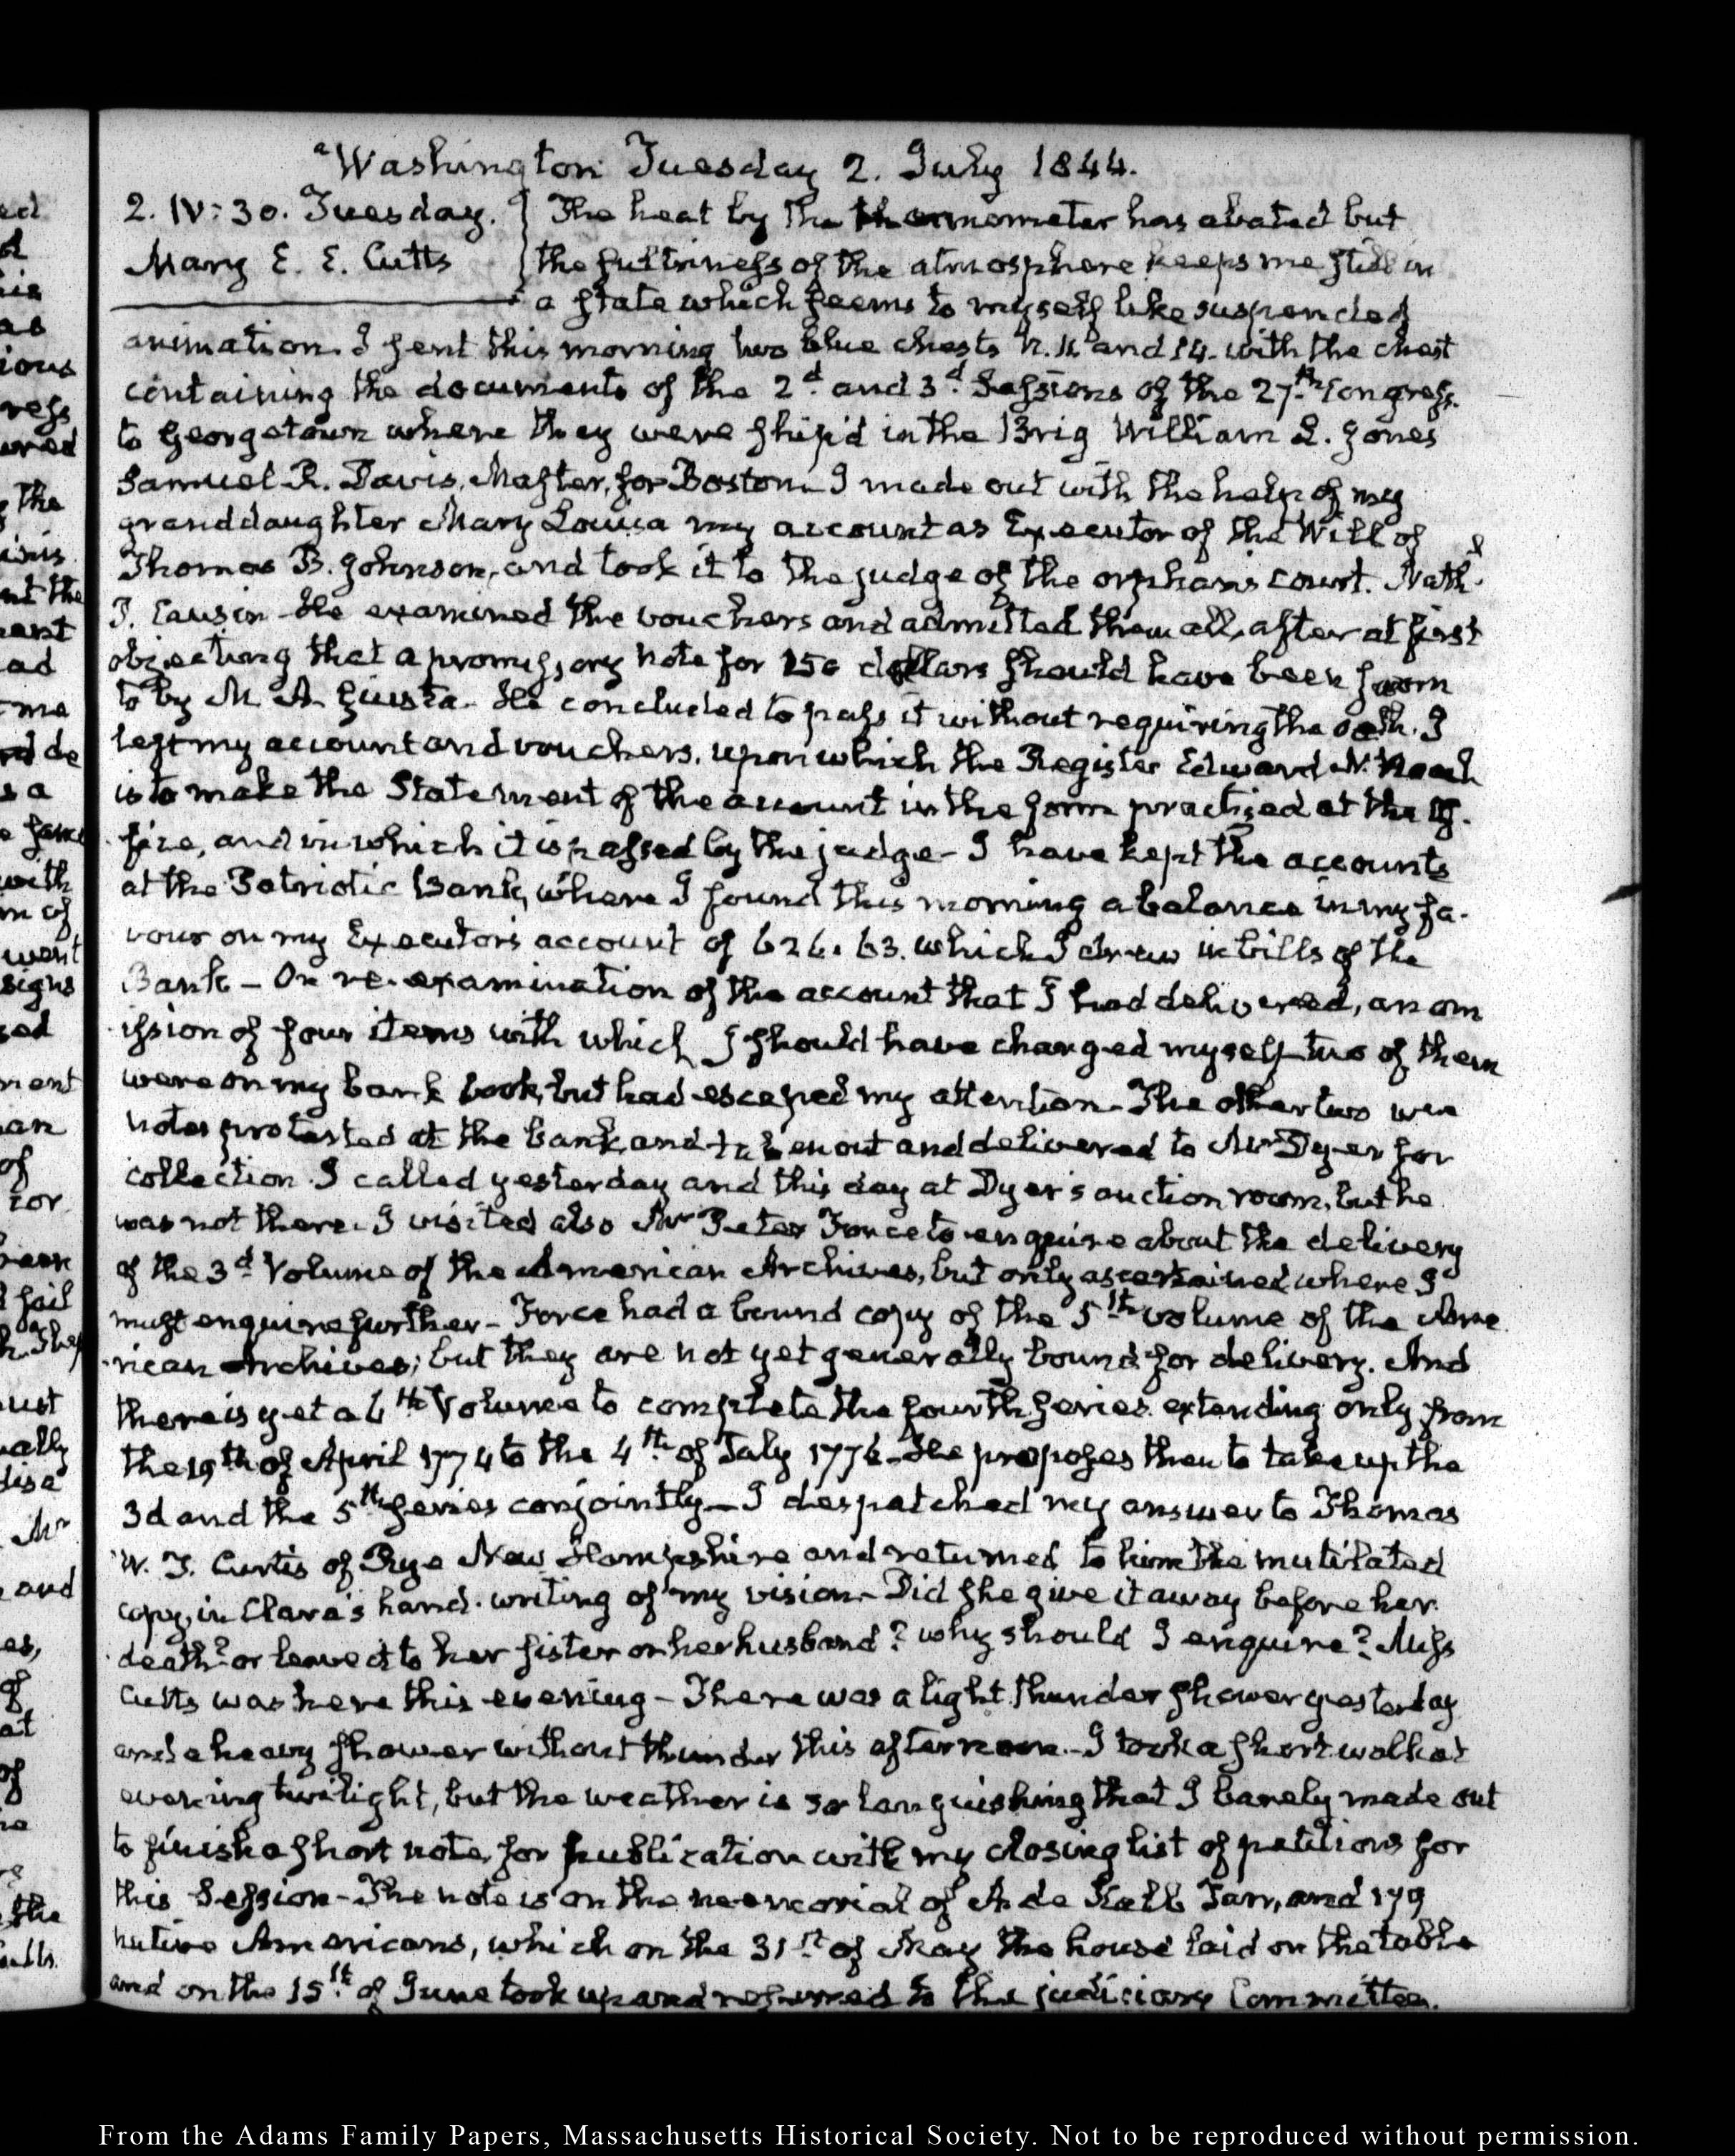 Washington Tuesday 2. July 1844.
2. IV: 30. Tuesday. The heat by the thermometer has abated but
Mary E. E. Cutts the sultriness of the atmosphere keeps me still in
a state which seems to myself like suspended
animation. I sent this morning two blue chests N. 11 and 14. with the chest
containing the documents of the 2d. and 3d. Sessions of the 27th. Congress.
to Georgetown where they were ship'd in the Brig William L. Jones
Samuel R. Davis, Master, for Boston. I made out with the help of my
granddaughter Mary Louisa my account as Executor of the Will of
Thomas B. Johnson, and took it to the judge of the orphans court. Nathl.
T. Causin. He examined the vouchers and admitted them all, after at first
objecting that a promissory note for 150 dollars should have been sworn
to by M. A. Giusta. He concluded to pass it without requiring the oath. I
left my account and vouchers, upon which the Register Edward N. Roach
is to make the Statement of the account in the form practised at the Of-
fice, and in which it is passed by the judge - I have kept the accounts
at the Patriotic Bank, where I found this morning a balance in my fa-
vour on my Executor's account of 626. 63. which I drew in bills of the
Bank - On re-examination of the account that I had delivered, an om
ission of four items with which I should have charged myself two of them
were on my bank book, but had escaped my attention. The other two were
notes protested at the bank, and taken out and delivered to Mr Dyer for
collection. I called yesterday and this day at Dyer's auction room, but he
was not there. I visited also Mr Peter Force to enquire about the delivery
of the 3d. Volume of the American Archives, but only ascertained where I
must enquire further - Force had a bound copy of the 5th. volume of the Ame
rican Archives; but they are not yet generally bound for delivery. And
there is yet a 6th Volume to complete the fourth series. extending only from
the 19th of April 1774 to the 4th. of July 1776. He proposes then to take up the
3d and the 5th. series conjointly - I despatched my answer to Thomas
W. T. Curtis of Rye New Hampshire and returned to him the mutilated
copy, in Clara's hand-writing of my vision - Did she give it away before her
death? or leave it to her sister or her husband? why should I enquire? Miss
Cutts was here this evening - There was a light thunder shower yesterday
and a heavy shower without thunder this afternoon. - I took a short walk at
evening twilight, but the weather is so languishing that I barely made out
to finish a short note, for publication with my closing list of petitions for
this Session - The note is on the memorial of A de Kalb Tarr, and 179
native Americans, which on the 31st. of May the house laid on the table
and on the 15th. of June took up and referred to the judiciary Committee.
ious
ress
the
nt the
ad
me
de
s a
with
m of
went
signs
an
of
for
fail
ust
ally
Mr
and
es,
of
at
of
the
From the Adams Family Papers, Massachusetts Historical Society. Not to be reproduced without permission.